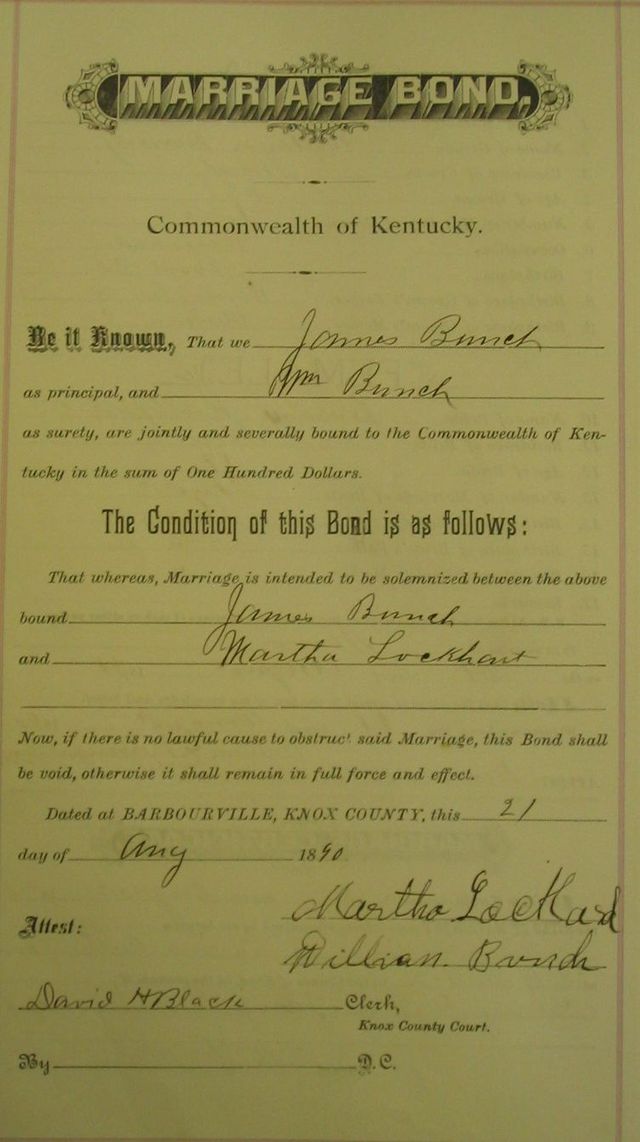 MARRIAGE BOND.
Commonwealth of Kentucky.
Be it Known, That we James Bunch
as principal, and Wm Bunch
as surety, are jointly and severally bound to the Commonwealth of Ken-
tucky in the sum of One Hundred Dollars.
The Condition of this Bond is as follows:
That whereas, Marriage is intended to be solemnized between the above
bound James Bunch
and Martha Lockhart
Now, if there is no lawful cause to obstruct said Marriage, this Bond shall
be void, otherwise it shall remain in full force and effect.
Dated at BARBOURVILLE, KNOX COUNTY, this 21
day of Aug 1890
Martha Lockhard
Attest:
Willian Bunch
David H Black Clerk,
Knox County Court.
By D.C.